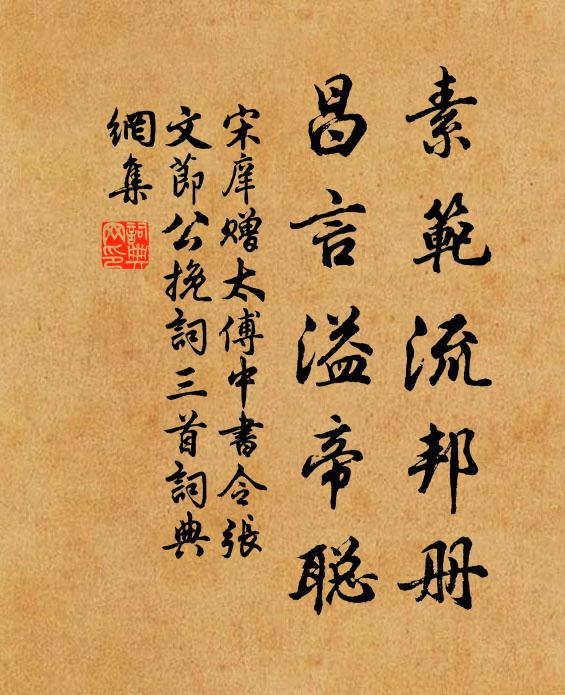 素範流邦册
昌言溢帝聪
宋庠赠太傅中書令張
文節公挽詞三首詞典
網集
詞典
网印